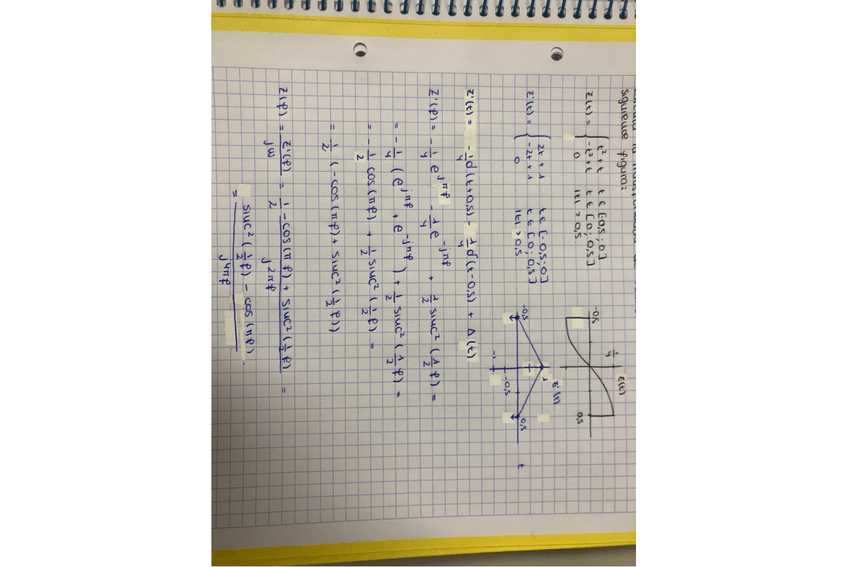 siguiente figura:
z(t) = { t² + t t ∈ [-0,5 ; 0]
-t² + t t ∈ [0 ; 0,5]
0 |t| > 0,5
z(t)
1/4
-0,5
0,5
z'(t) = { 2t + 1 t ∈ [-0,5 ; 0]
-2t + 1 t ∈ [0 ; 0,5]
0 |t| > 0,5
z'(t)
1
-0,5
0,5
t
-0,5
-1
z'(t) = - 1/4 δ(t+0,5) - 1/4 δ(t-0,5) + Δ(t)
Z'(f) = - 1/4 e^{jπf} - 1/4 e^{-jπf} + 1/2 sinc² (1/2 f) =
= - 1/4 (e^{jπf} + e^{-jπf}) + 1/2 sinc² (1/2 f) =
= - 1/2 cos(πf) + 1/2 sinc² (1/2 f) =
= 1/2 (-cos(πf) + sinc² (1/2 f))
Z(f) = Z'(f)/jω = 1/2 -cos(πf) + sinc² (1/2 f) / j2πf =
= sinc² (1/2 f) - cos(πf) / j4πf .